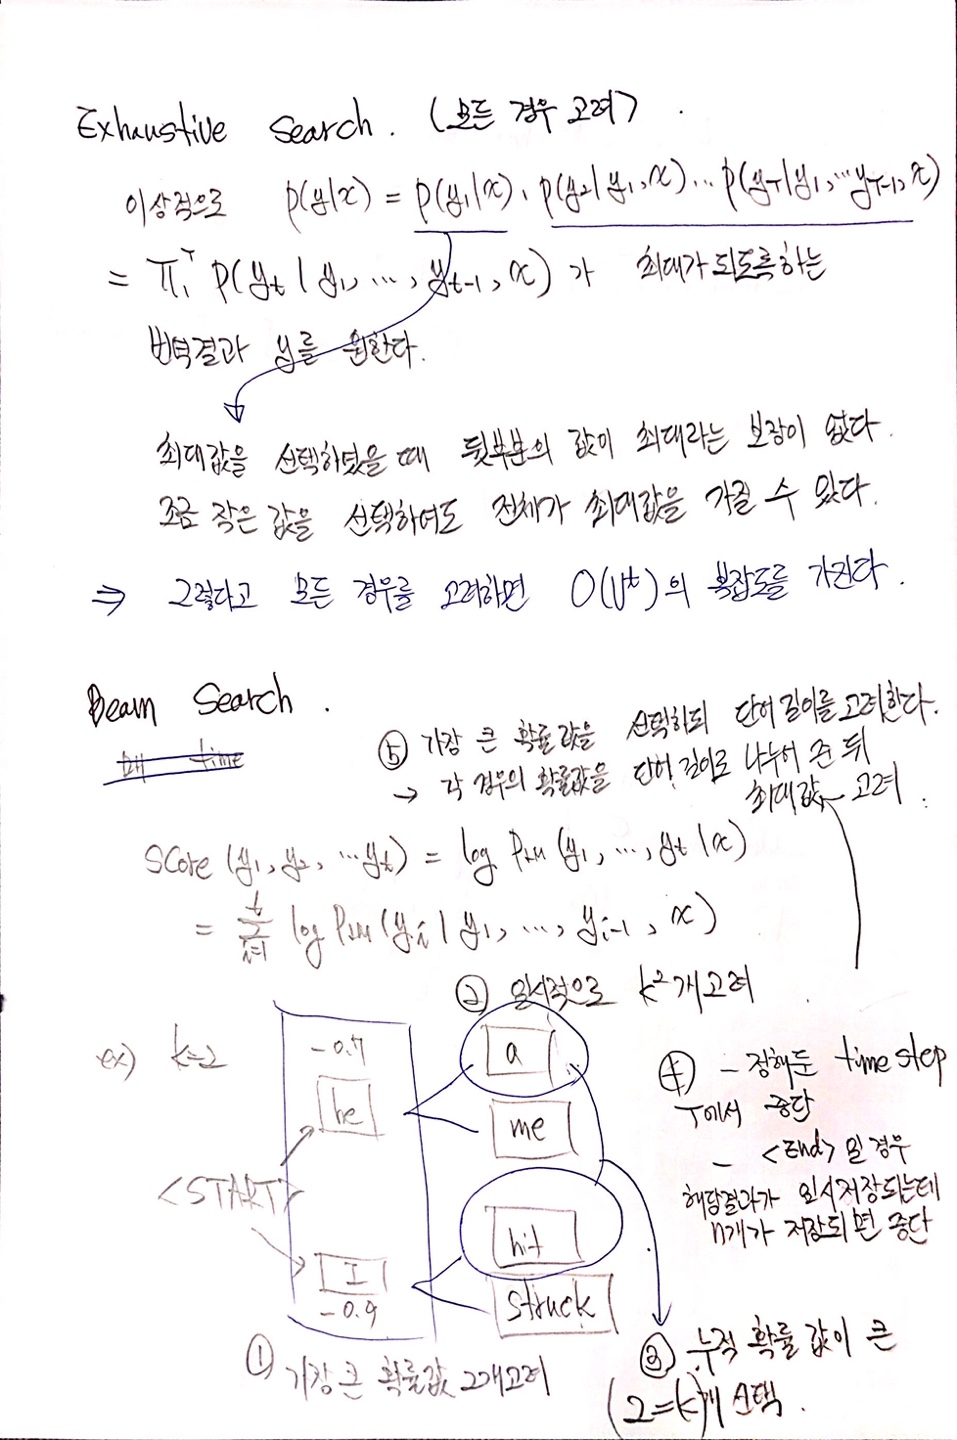 Exhaustive Search. (모든 경우 고려).
이상적으로 p(y|x) = p(y₁|x), p(y₂|y₁,x)... p(y_T|y₁,...y_T-1,x)
= Π₁ᵀ p(y_t | y₁, ..., y_t-1, x) 가 최대가 되도록하는
번역결과 y를 원한다.
최대값을 선택하였을 때 뒷부분의 값이 최대라는 보장이 없다.
조금 작은 값을 선택하여도 전체가 최대값을 가질 수 있다.
⇒ 그렇다고 모든 경우를 고려하면 O(Vᵗ)의 복잡도를 가진다.
Beam Search.
time
⑤ 가장 큰 확률값을 선택하되 단어 길이를 고려한다.
→ 각 경우의 확률값을 단어 길이로 나누어 준 뒤
최대값 고려.
Score (y₁, y₂, ...y_t) = log P_LM (y₁, ..., y_t |x)
= Σ_{i=1}^t log P_LM (y_i | y₁, ..., y_i-1, x)
② 일시적으로 k²개 고려
ex) k=2
-0.7
he
<START>
I
-0.9
a
me
hit
struck
① 가장 큰 확률값 2개 고려
④ - 정해둔 time step
T에서 중단
- <End> 일 경우
해당결과가 임시저장되는데
n개가 저장되면 중단
③ 누적 확률 값이 큰
(2=k)개 선택.